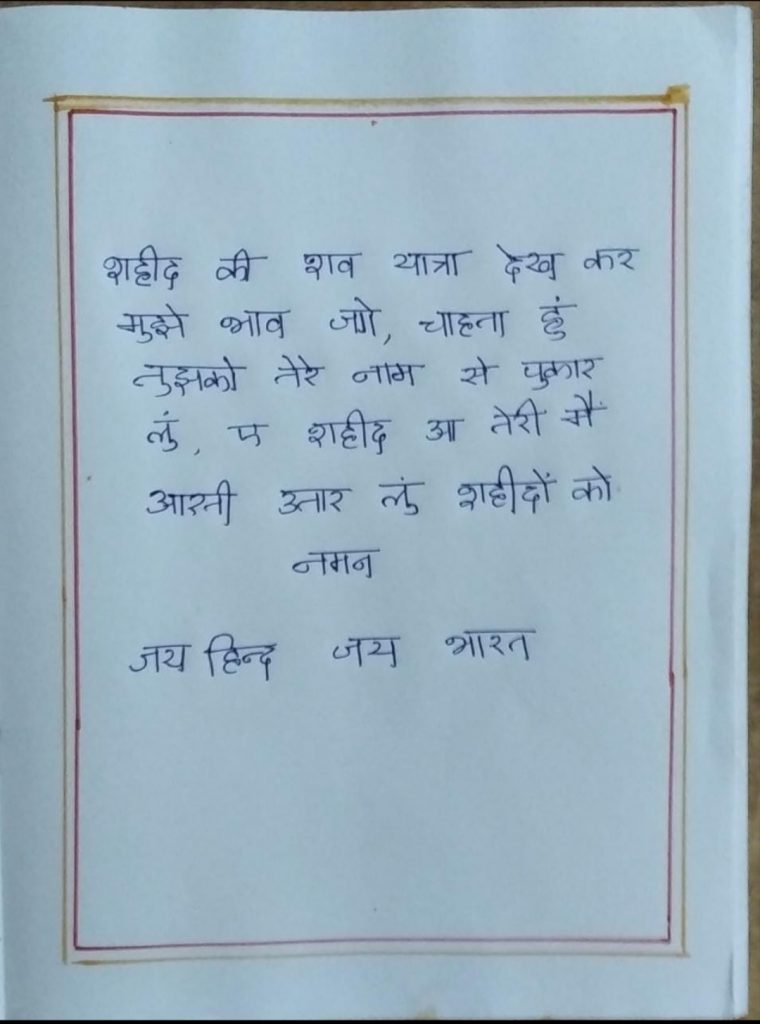 शहीद की शव यात्रा देख कर
मुझे भाव जगे, चाहता हुं
तुझको तेरे नाम से पुकार
लुं, ए शहीद आ तेरी मैं
आरती उतार लुं शहीदों को
नमन
जय हिन्द जय भारत